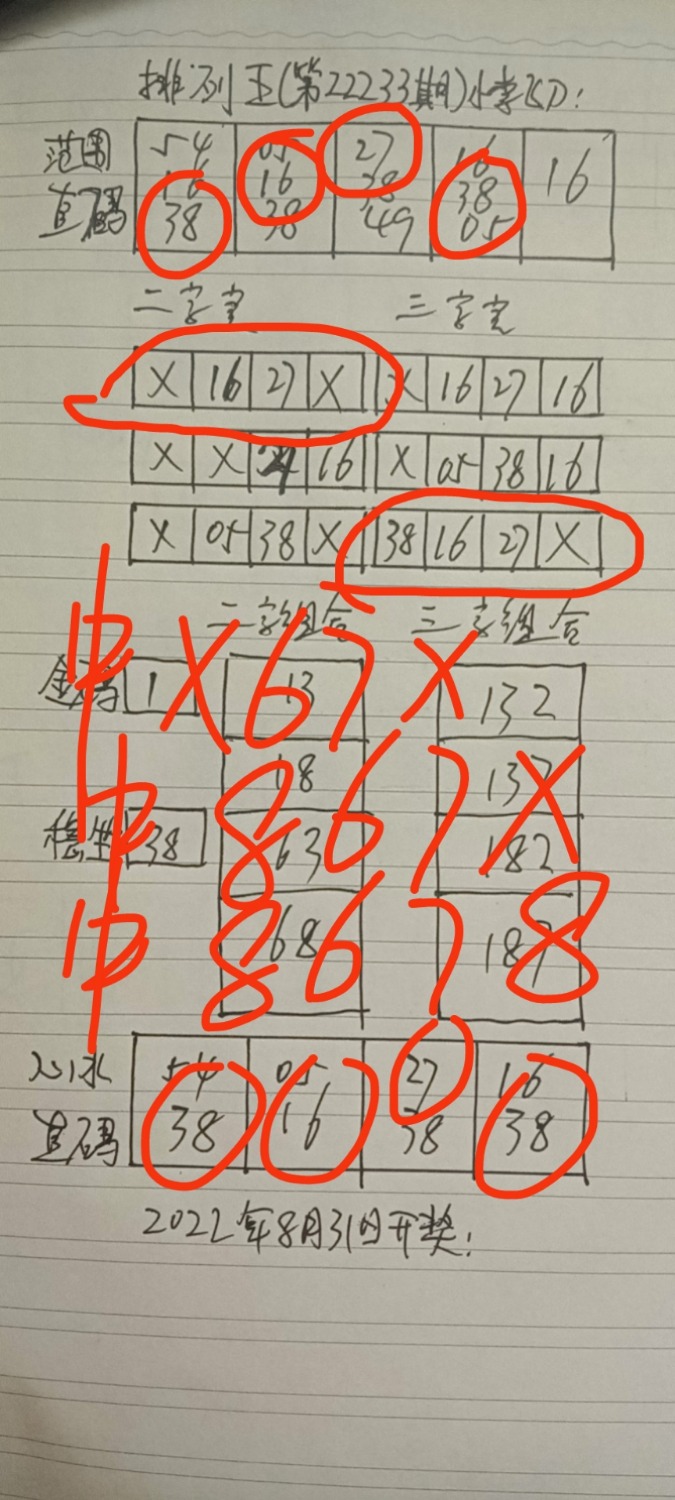 排列五(第22233期)
范围 54 05 27 16 16
直码 16 16 38 38
38 38 49 05
二字定 三字定
X 16 27 X X 16 27 16
X X 16 X 05 38 16
X 05 38 X 38 16 27 X
二字组合 三字组合
1 13 132
18 137
38 63 182
68 187
中 X 6 7 X
中 8 6 7 X
中 8 6 7 8
心水 54 05 27 16
直码 38 16 38 38
2022年8月31日开奖: